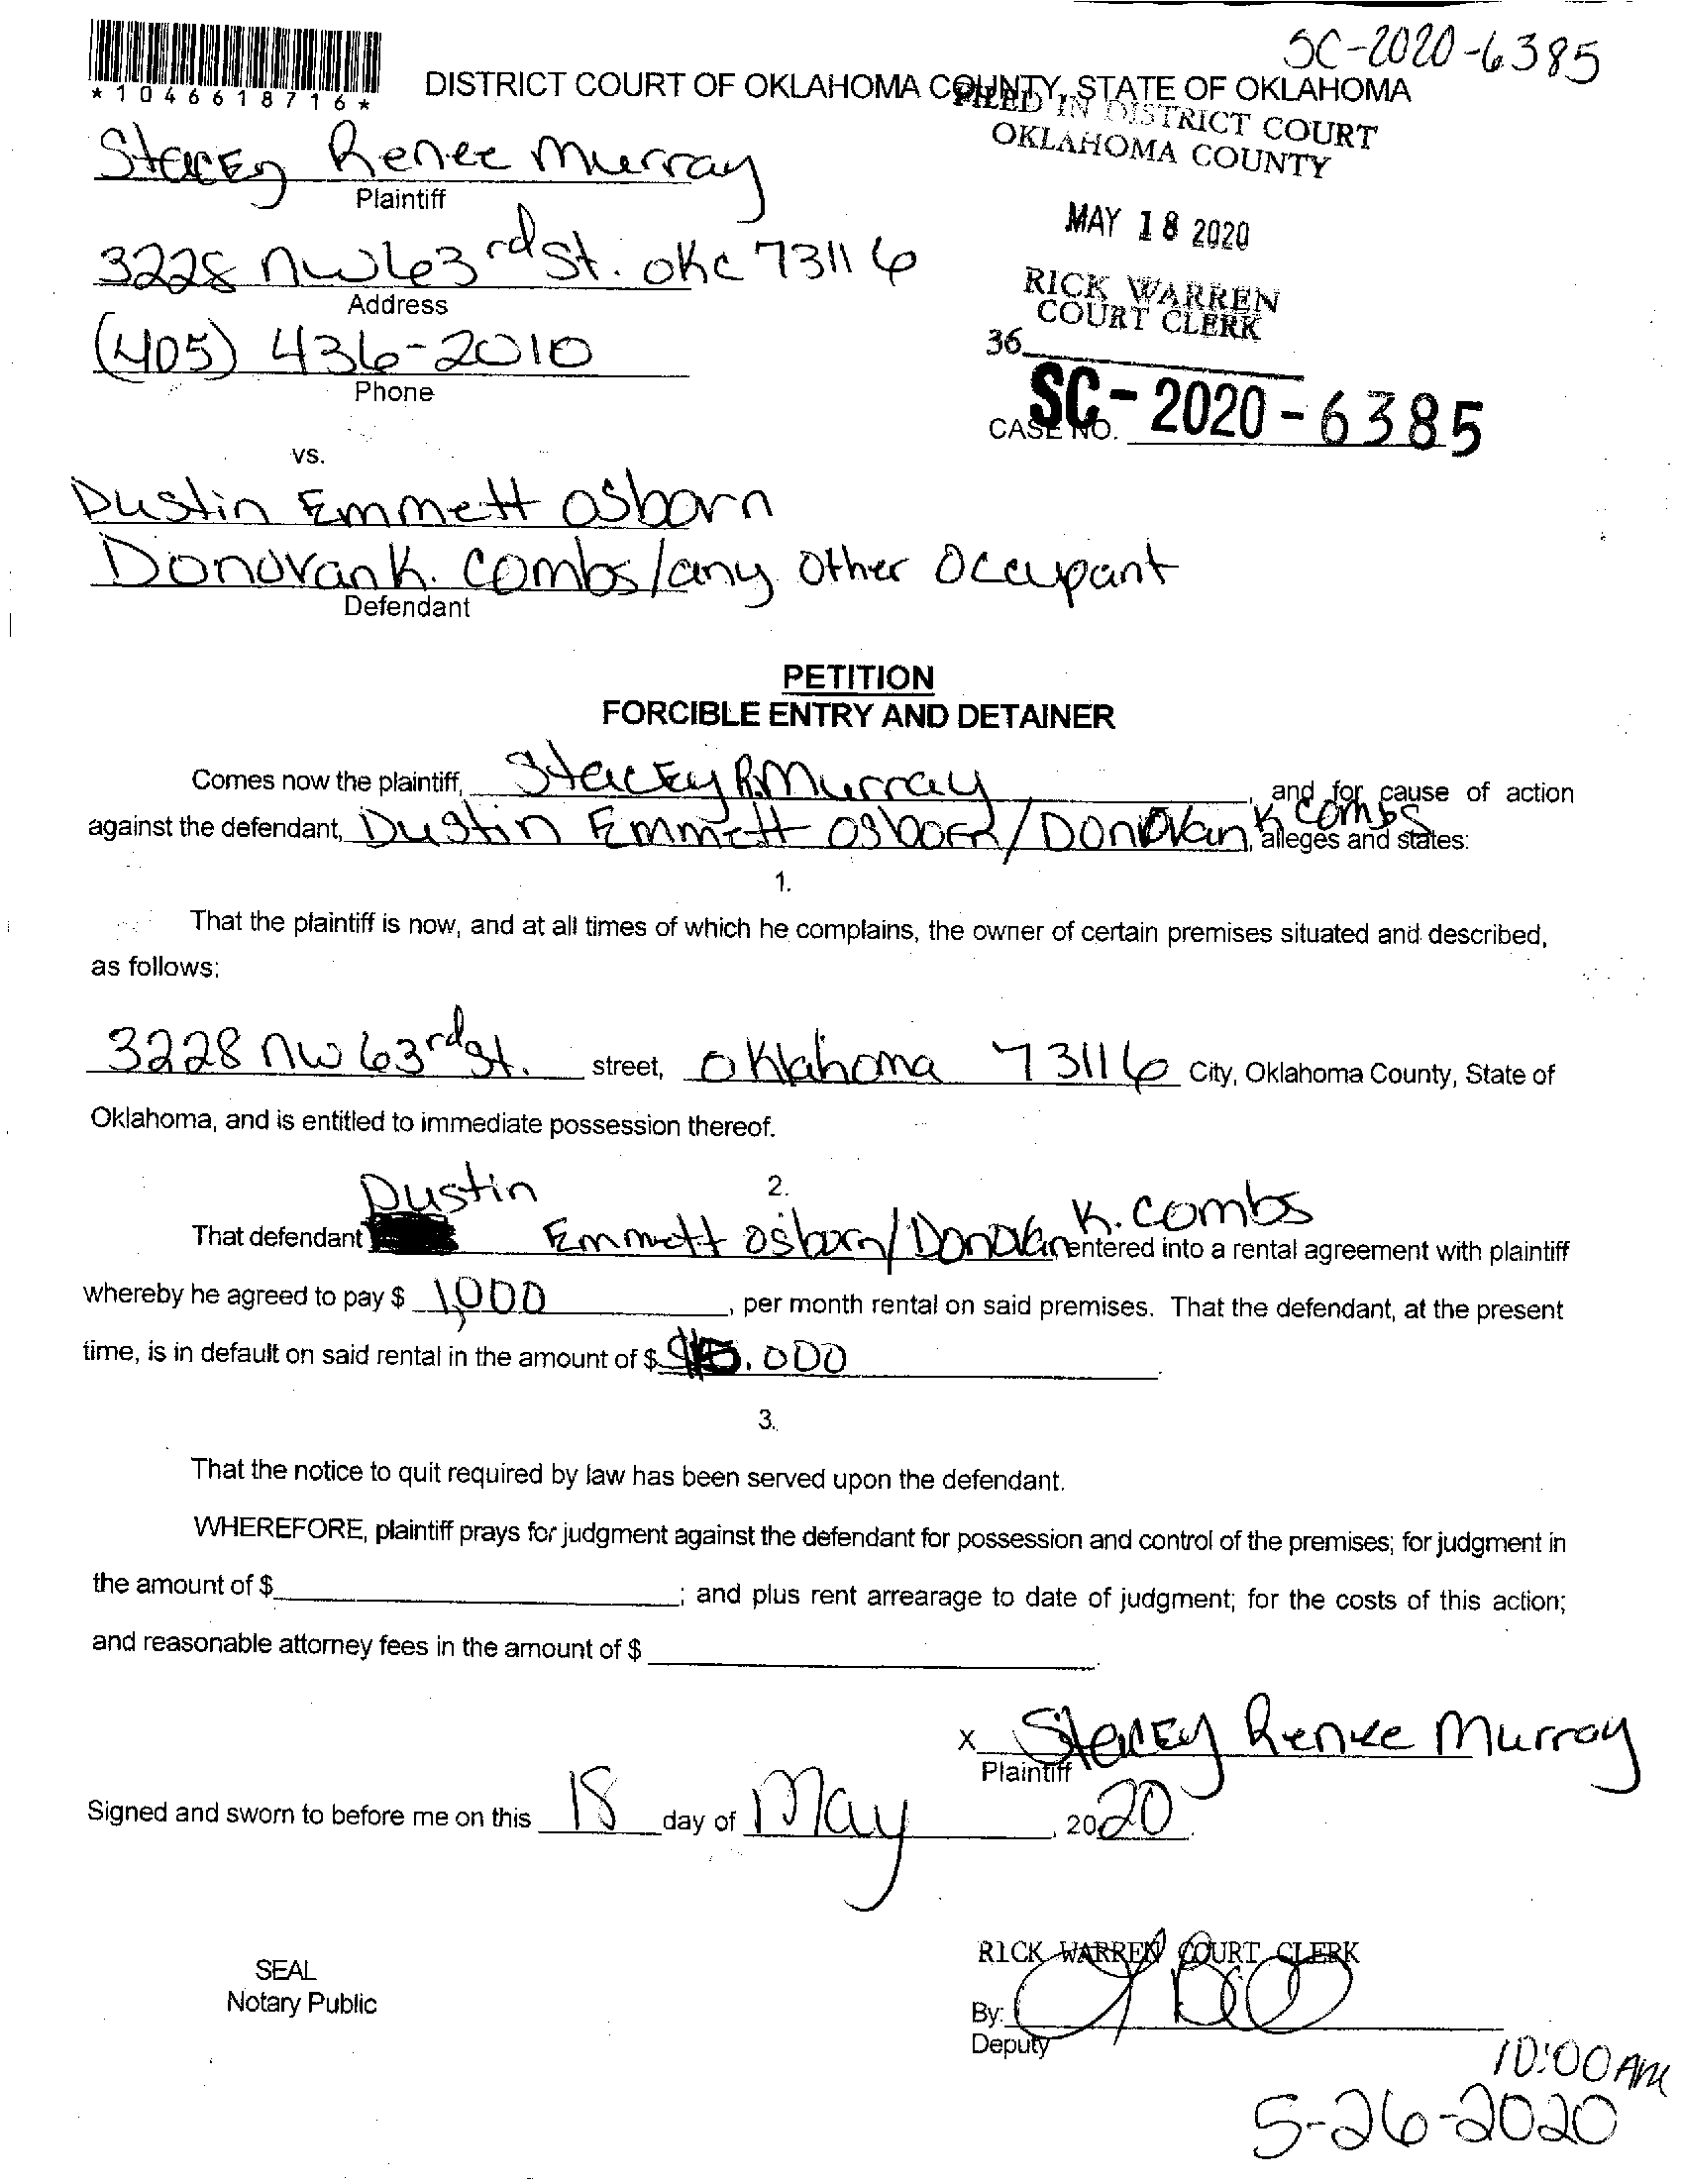 SC-2020-6385
*1046618716*
DISTRICT COURT OF OKLAHOMA COUNTY, STATE OF OKLAHOMA
FILED IN DISTRICT COURT
OKLAHOMA COUNTY
Stacey Renee Murray
Plaintiff
MAY 18 2020
3228 NW 63rd St. OKC 73116
Address
RICK WARREN
COURT CLERK
(405) 436-2010
36
Phone
CASE NO. SC-2020-6385
vs.
Dustin Emmett Osborn
Donovan K. Combs/any Other Occupant
Defendant
PETITION
FORCIBLE ENTRY AND DETAINER
Comes now the plaintiff, Stacey R. Murray, and for cause of action
against the defendant, Dustin Emmett Osborn/Donovan K Combs, alleges and states:
1.
That the plaintiff is now, and at all times of which he complains, the owner of certain premises situated and described,
as follows:
3228 NW 63rd St. street, Oklahoma 73116 City, Oklahoma County, State of
Oklahoma, and is entitled to immediate possession thereof.
2.
That defendant Dustin Emmett Osborn/Donovan K. Combs entered into a rental agreement with plaintiff
whereby he agreed to pay $ 1,000, per month rental on said premises. That the defendant, at the present
time, is in default on said rental in the amount of $ .000
3.
That the notice to quit required by law has been served upon the defendant.
WHEREFORE, plaintiff prays for judgment against the defendant for possession and control of the premises; for judgment in
the amount of $ ; and plus rent arrearage to date of judgment; for the costs of this action;
and reasonable attorney fees in the amount of $ .
X Stacey Renee Murray
Plaintiff
Signed and sworn to before me on this 18 day of May, 2020.
RICK WARREN COURT CLERK
SEAL
Notary Public
By:
Deputy
10:00 AM
5-26-2020